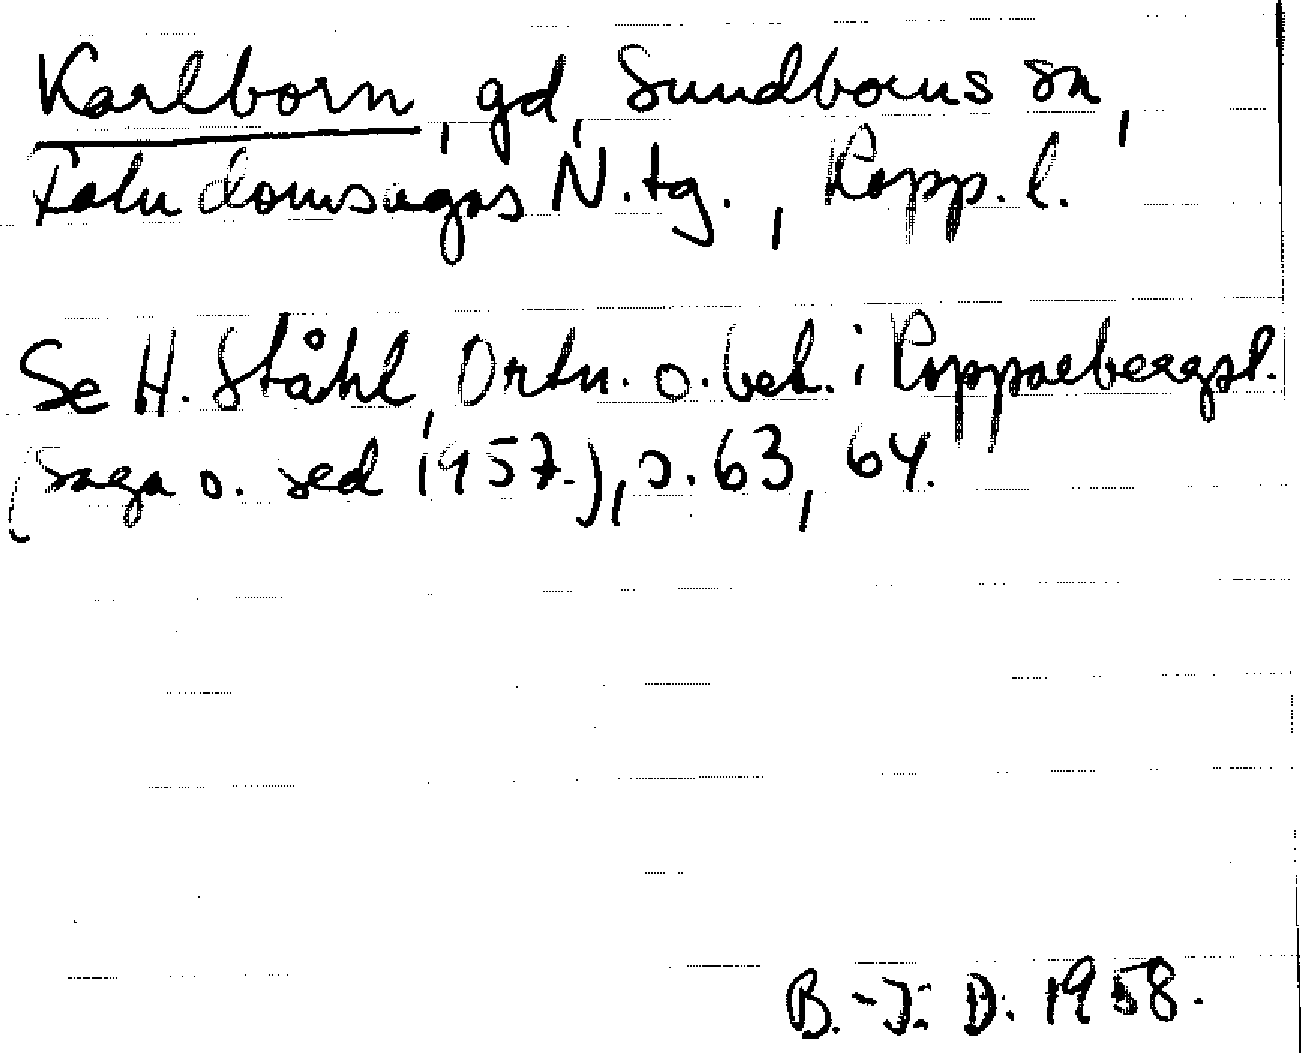 Karlborn, gd, Sundborns sn,
Falu domsagas N. tg., Kopp. l.
Se H. Ståhl, Ortn. o. beb. i Kopparbergsl.
(Saga o. sed 1957), s. 63, 64.
B.-J: D. 1958.